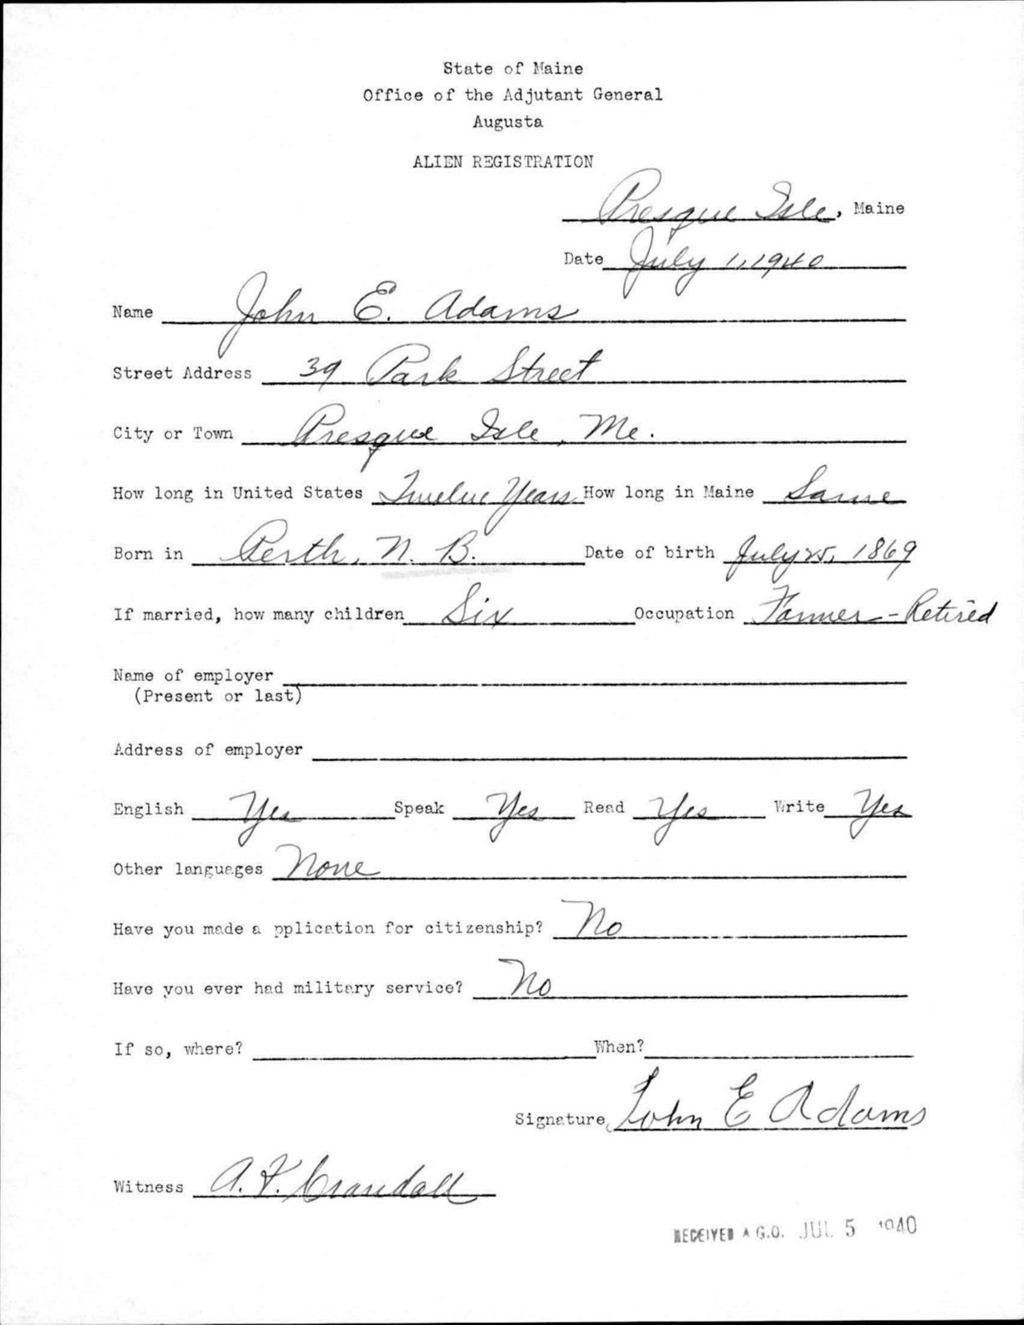 State of Maine
Office of the Adjutant General
Augusta
ALIEN REGISTRATION
Presque Isle, Maine
Date July 1, 1940
Name John E. Adams
Street Address 39 Park Street
City or Town Presque Isle, Me.
How long in United States Twelve Years How long in Maine Same
Born in Perth, N. B. Date of birth July 25, 1869
If married, how many children Six Occupation Farmer - Retired
Name of employer
(Present or last)
Address of employer
English Yes Speak Yes Read Yes Write Yes
Other languages None
Have you made a pplication for citizenship? No
Have you ever had military service? No
If so, where? When?
Signature John E Adams
Witness A. F. Crandall
RECEIVED A.G.O. JUL 5 1940